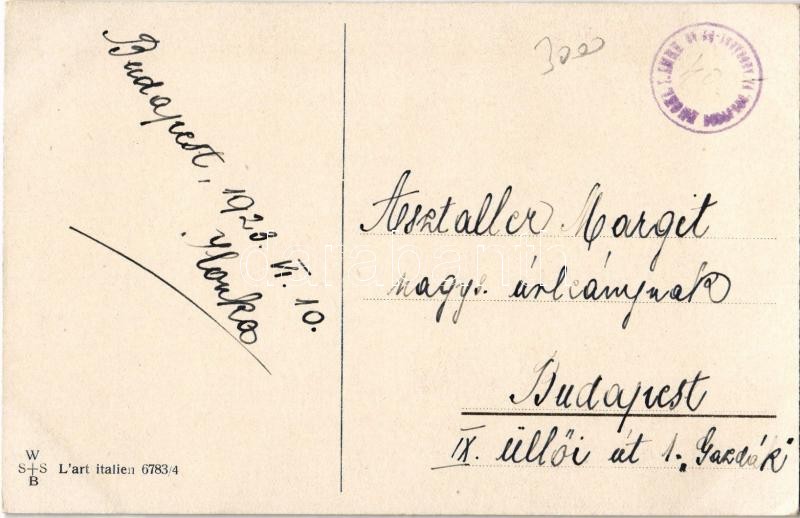 Budapest, 1923. VI. 10.
Ilonka
3000
40
Asztaller Margit
nagys. úrleánynak
Budapest
IX. üllői út 1. „Gazdák"
W
S S
B
L'art italien 6783/4